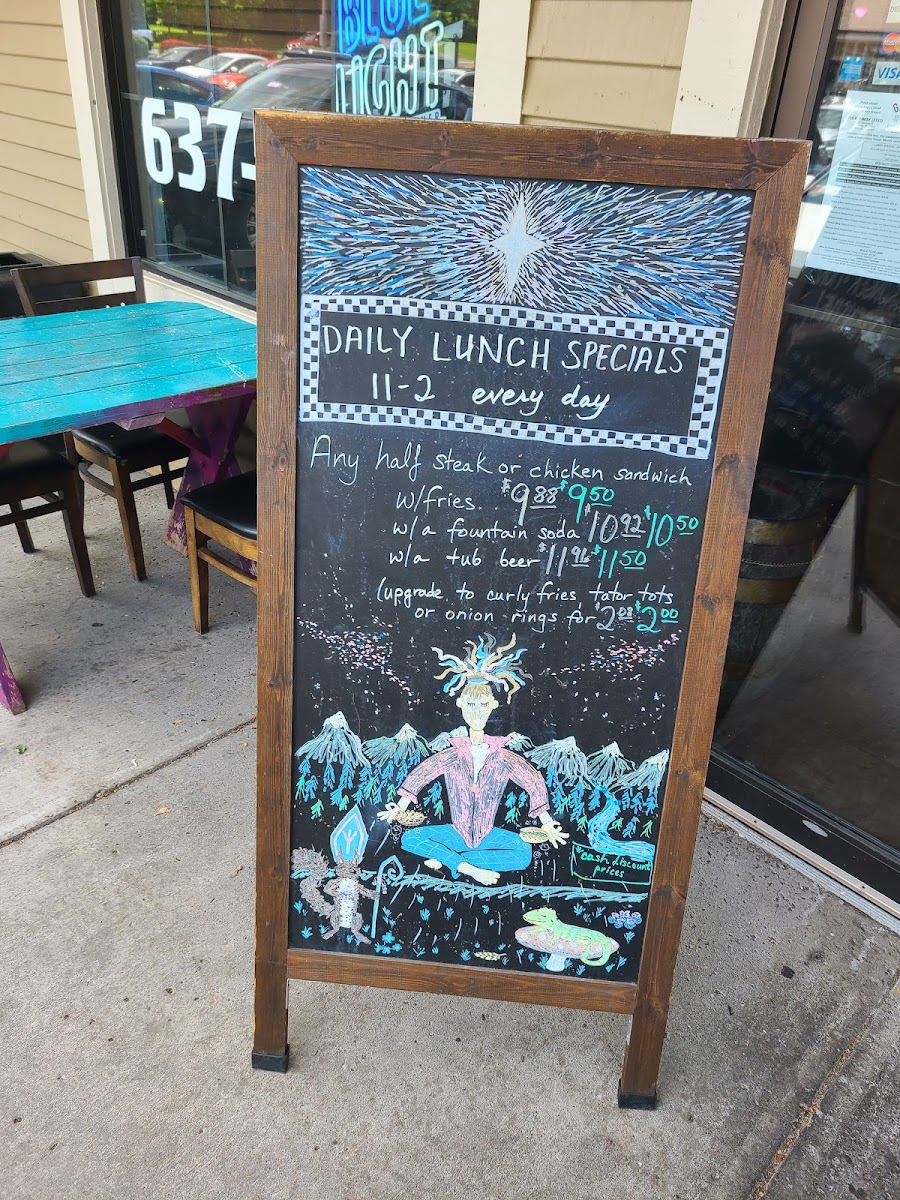 BLUE
LIGHT
637-
VISA
DAILY LUNCH SPECIALS
11-2 every day
Any half steak or chicken sandwich
w/fries $9.88 $9.50
w/a fountain soda $10.92 $10.50
w/a tub beer $11.96 $11.50
(upgrade to curly fries, tator tots
or onion rings for $2.08 $2.00
*cash discount
prices